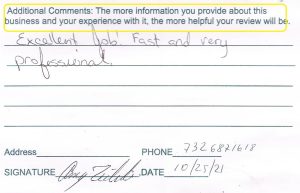 Additional Comments: The more information you provide about this
business and your experience with it, the more helpful your review will be.
Excellent Job! Fast and very
professional.
Address PHONE 7326871618
SIGNATURE DATE 10/25/21